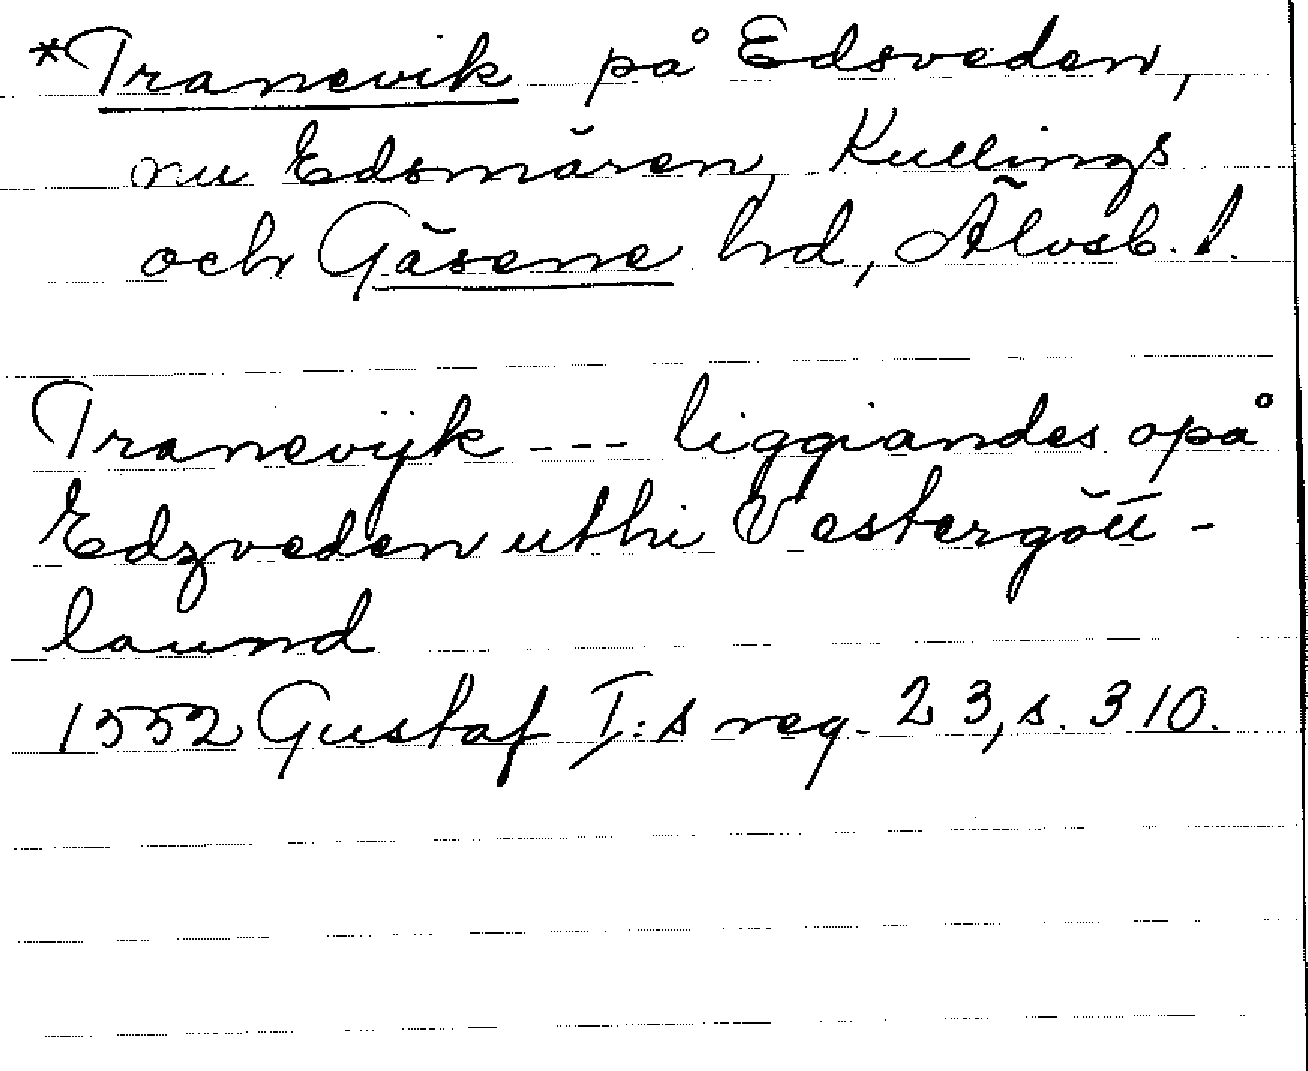 *Tranevik på Edsveden,
nu Edsmären, Kullings
och Gäsene hd, Älvsb. l.
Tranevijk --- liggiandes opå
Edzveden uthi Vestergött-
laund
1552 Gustaf I:s reg. 23, s. 310.